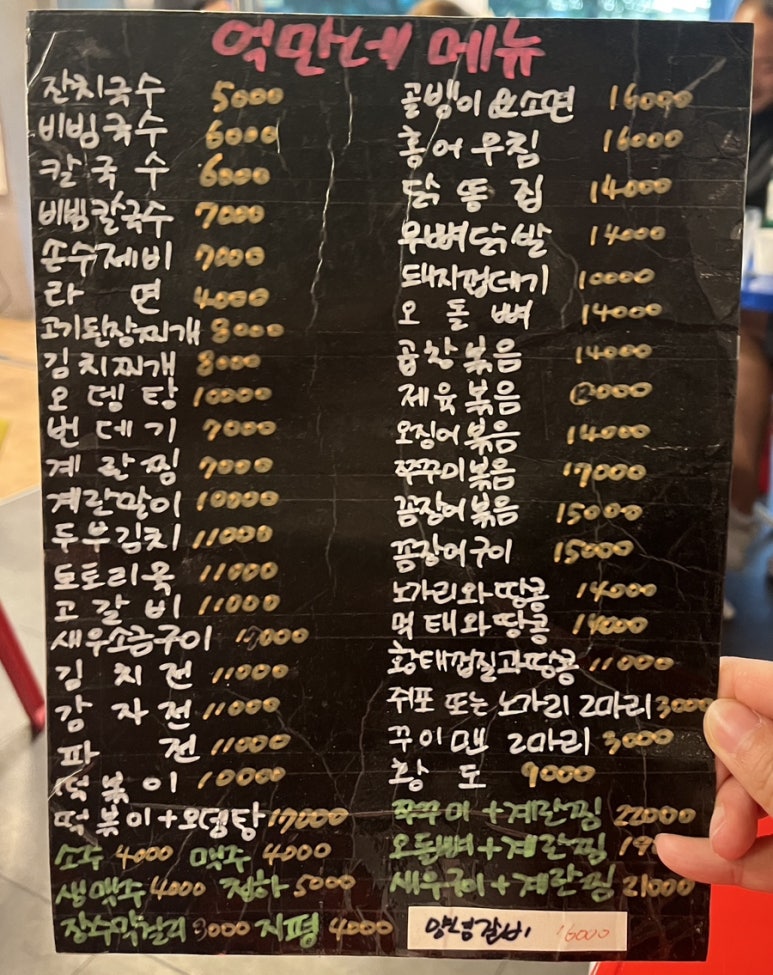 억만네 메뉴
잔치국수 5000
비빔국수 6000
칼국수 6000
비빔칼국수 7000
손수제비 7000
라면 4000
고기된장찌개 8000
김치찌개 8000
오뎅탕 10000
번데기 7000
계란찜 7000
계란말이 10000
두부김치 11000
도토리묵 11000
고갈비 11000
새우소금구이
김치전 11000
감자전 11000
파전 11000
떡볶이 10000
떡볶이+오뎅탕 17000
소주 4000 맥주 4000
생맥주 4000 청하 5000
장수막걸리 3000 지평 4000
골뱅이&소면 16000
홍어무침 16000
닭똥집 14000
무뼈닭발 14000
돼지껍데기 10000
오돌뼈 14000
곱창볶음 14000
제육볶음 12000
오징어볶음 14000
쭈꾸미볶음 17000
꼼장어볶음 15000
꼼장어구이 15000
노가리와땅콩 14000
먹태와땅콩 14000
황태껍질과땅콩 11000
쥐포 또는 노가리 2마리 3000
꾸이맨 2마리 3000
황도 9000
쭈꾸미+계란찜 22000
오돌뼈+계란찜
새우구이+계란찜 21000
양념갈비 16000